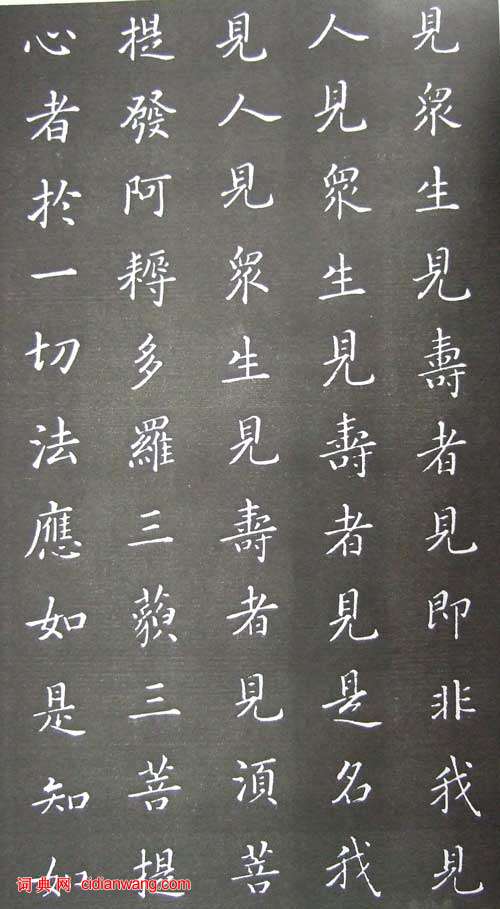 見眾生見壽者見即非我見
人見眾生見壽者見是名我
見人見眾生見壽者見須菩
提發阿耨多羅三藐三菩提
心者於一切法應如是知如
词典网 - cidianwang.com